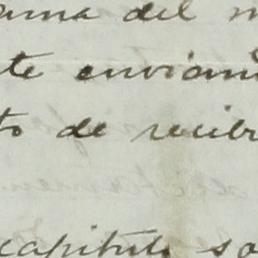 ama del m
te envian
to de recibi
capitulo so